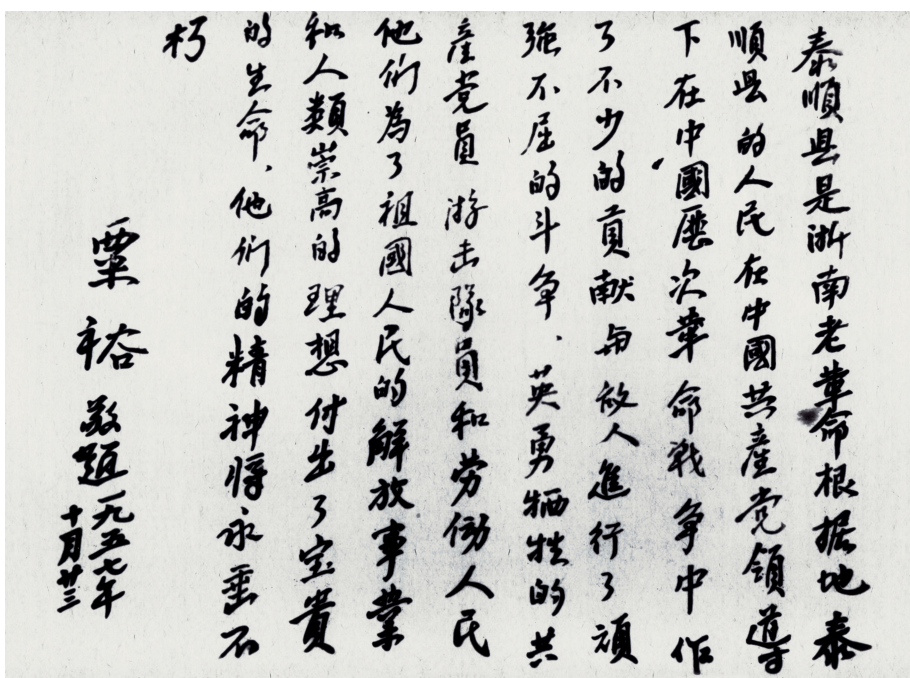 泰順县是浙南老革命根据地泰
順县的人民在中國共產党領導
下在中國歷次革命战争中作
了不少的貢献与敌人進行了頑
强不屈的斗争、英勇牺牲的共
產党員游击隊員和劳仂人民
他們為了祖國人民的解放事業
和人類崇高的理想付出了宝貴
的生命、他們的精神将永垂不
朽
粟裕敬題一九五七年
十月廿三